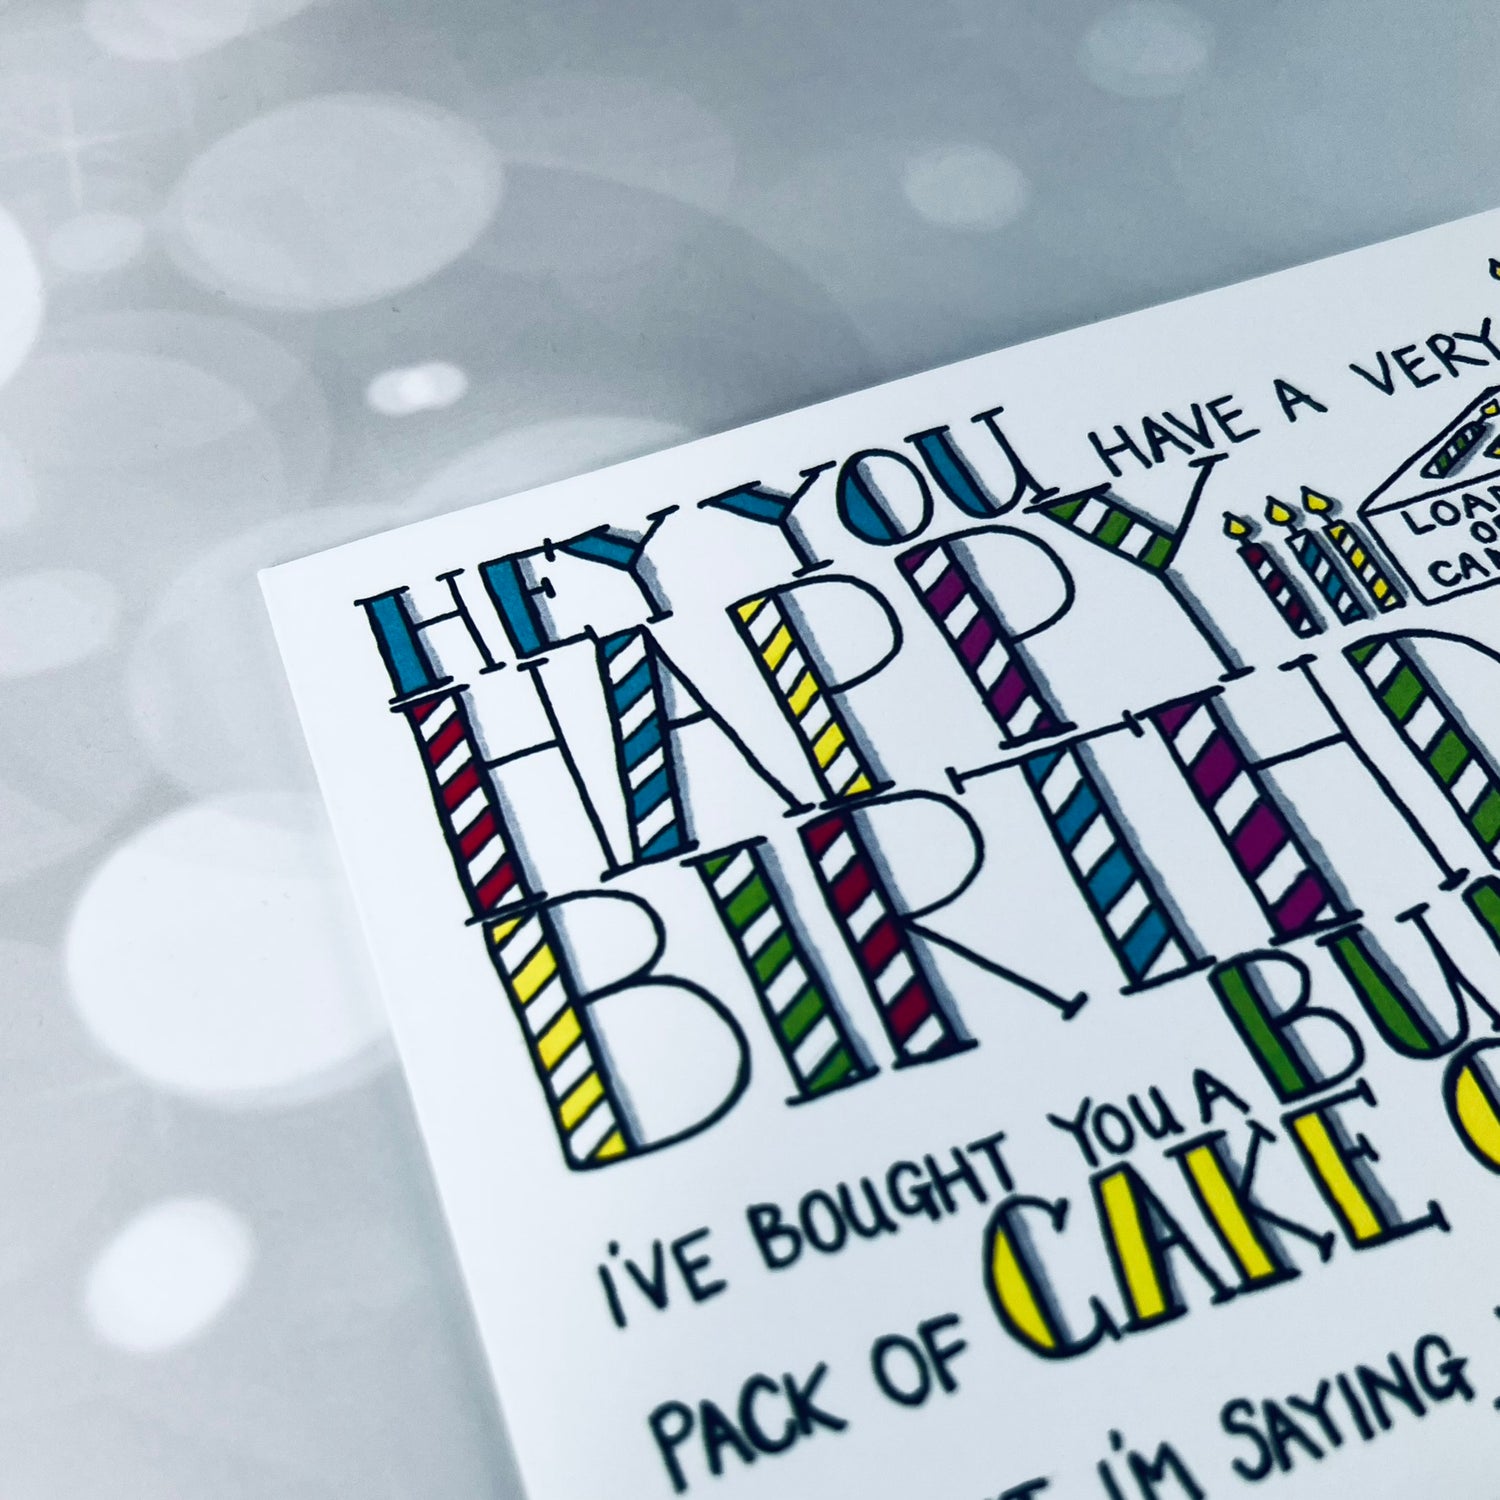 HEY YOU HAVE A VERY
HAPPY
BIRTHD
I'VE BOUGHT YOU A BU
PACK OF CAKE
I'M SAYING
LOAD
OF
CAN